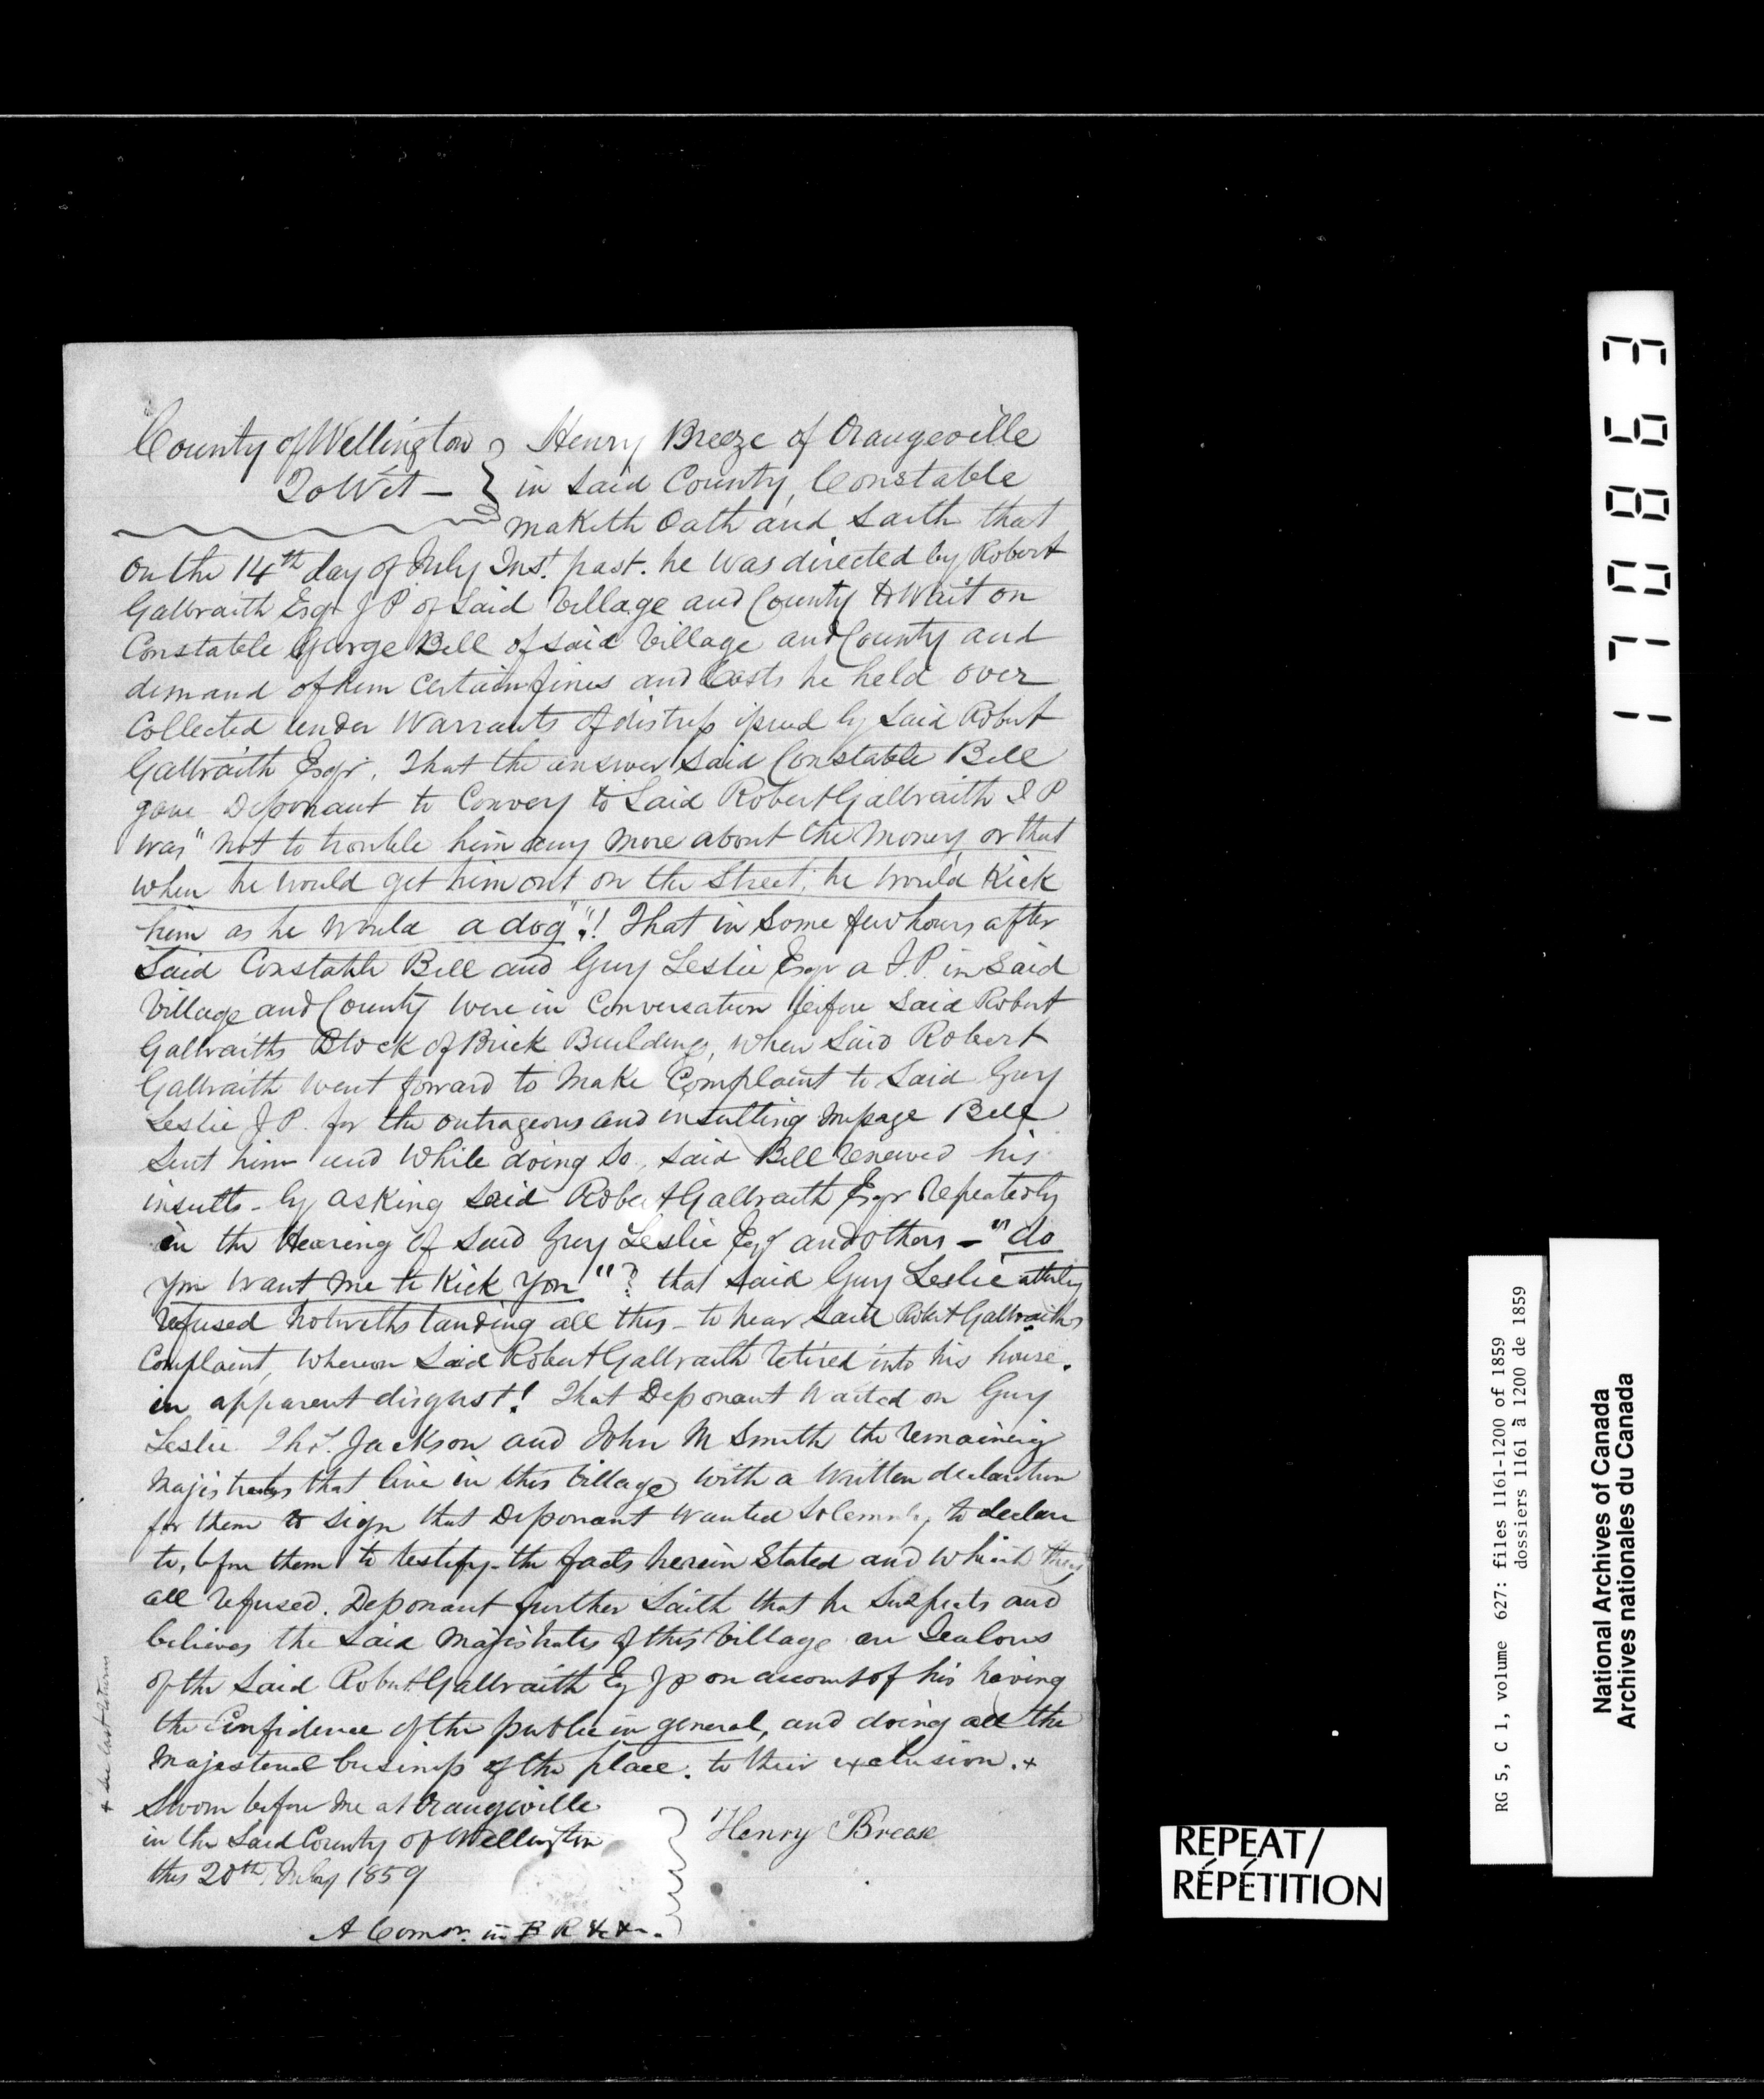 County of Wellington } Henry Breeze of Orangeville
To Wit — } in said County, Constable
maketh Oath and saith that
on the 14th day of July Inst. past. he was directed by Robert
Galbraith Esqr J P of said Village and County to Wait on
Constable George Bell of said Village and County and
demand of him certain fines and Costs he held over
Collected under Warrants of distress issued by said Robert
Galbraith Esqr. That the answer said Constable Bell
gave Deponant to Convey to said Robert Galbraith J P
was "not to trouble him any more about the money, or that
when he would get him out on the Street, he would Kick
him as he would a dog"! That in some few hours after
said Constable Bell and Guy Leslie Esqr a J.P. in said
Village and County were in Conversation before said Robert
Galbraiths Block of Brick Buildings, when said Robert
Galbraith went forward to make Complaint to said Guy
Leslie J P. for the outrageous and insulting message Bell
sent him and while doing so, said Bell renewed his
insults - by asking said Robert Galbraith Esqr repeatedly
in the Hearing of said Guy Leslie Esqr and others - "do
you want me to Kick you"? that said Guy Leslie utterly
refused notwithstanding all this - to hear said Robert Galbraiths
Complaint, whereon said Robert Galbraith retired into his house.
in apparent disgust! That Deponant waited on Guy
Leslie Thos. Jackson and John M Smith the remaining
Majistrates that live in this Village with a written declaration
for them to sign that Deponant wanted solemnly to declare
to, before them to testify the facts herein stated and which they
all refused. Deponant further saith that he suspects and
believes the said Majistrates of this Village are Jealous
of the said Robert Galbraith Esq JP on account of his having
the Confidence of the public in general, and doing all the
Majesterial business of the place. to their exclusion. +
+ see last returns
Sworn before me at Orangeville
in the said County of Wellington
this 20th July 1859
Henry Brease
A Comsr. in B R &c &c.
170863
REPEAT/
RÉPÉTITION
RG 5, C 1, volume 627: files 1161-1200 of 1859
dossiers 1161 à 1200 de 1859
National Archives of Canada
Archives nationales du Canada